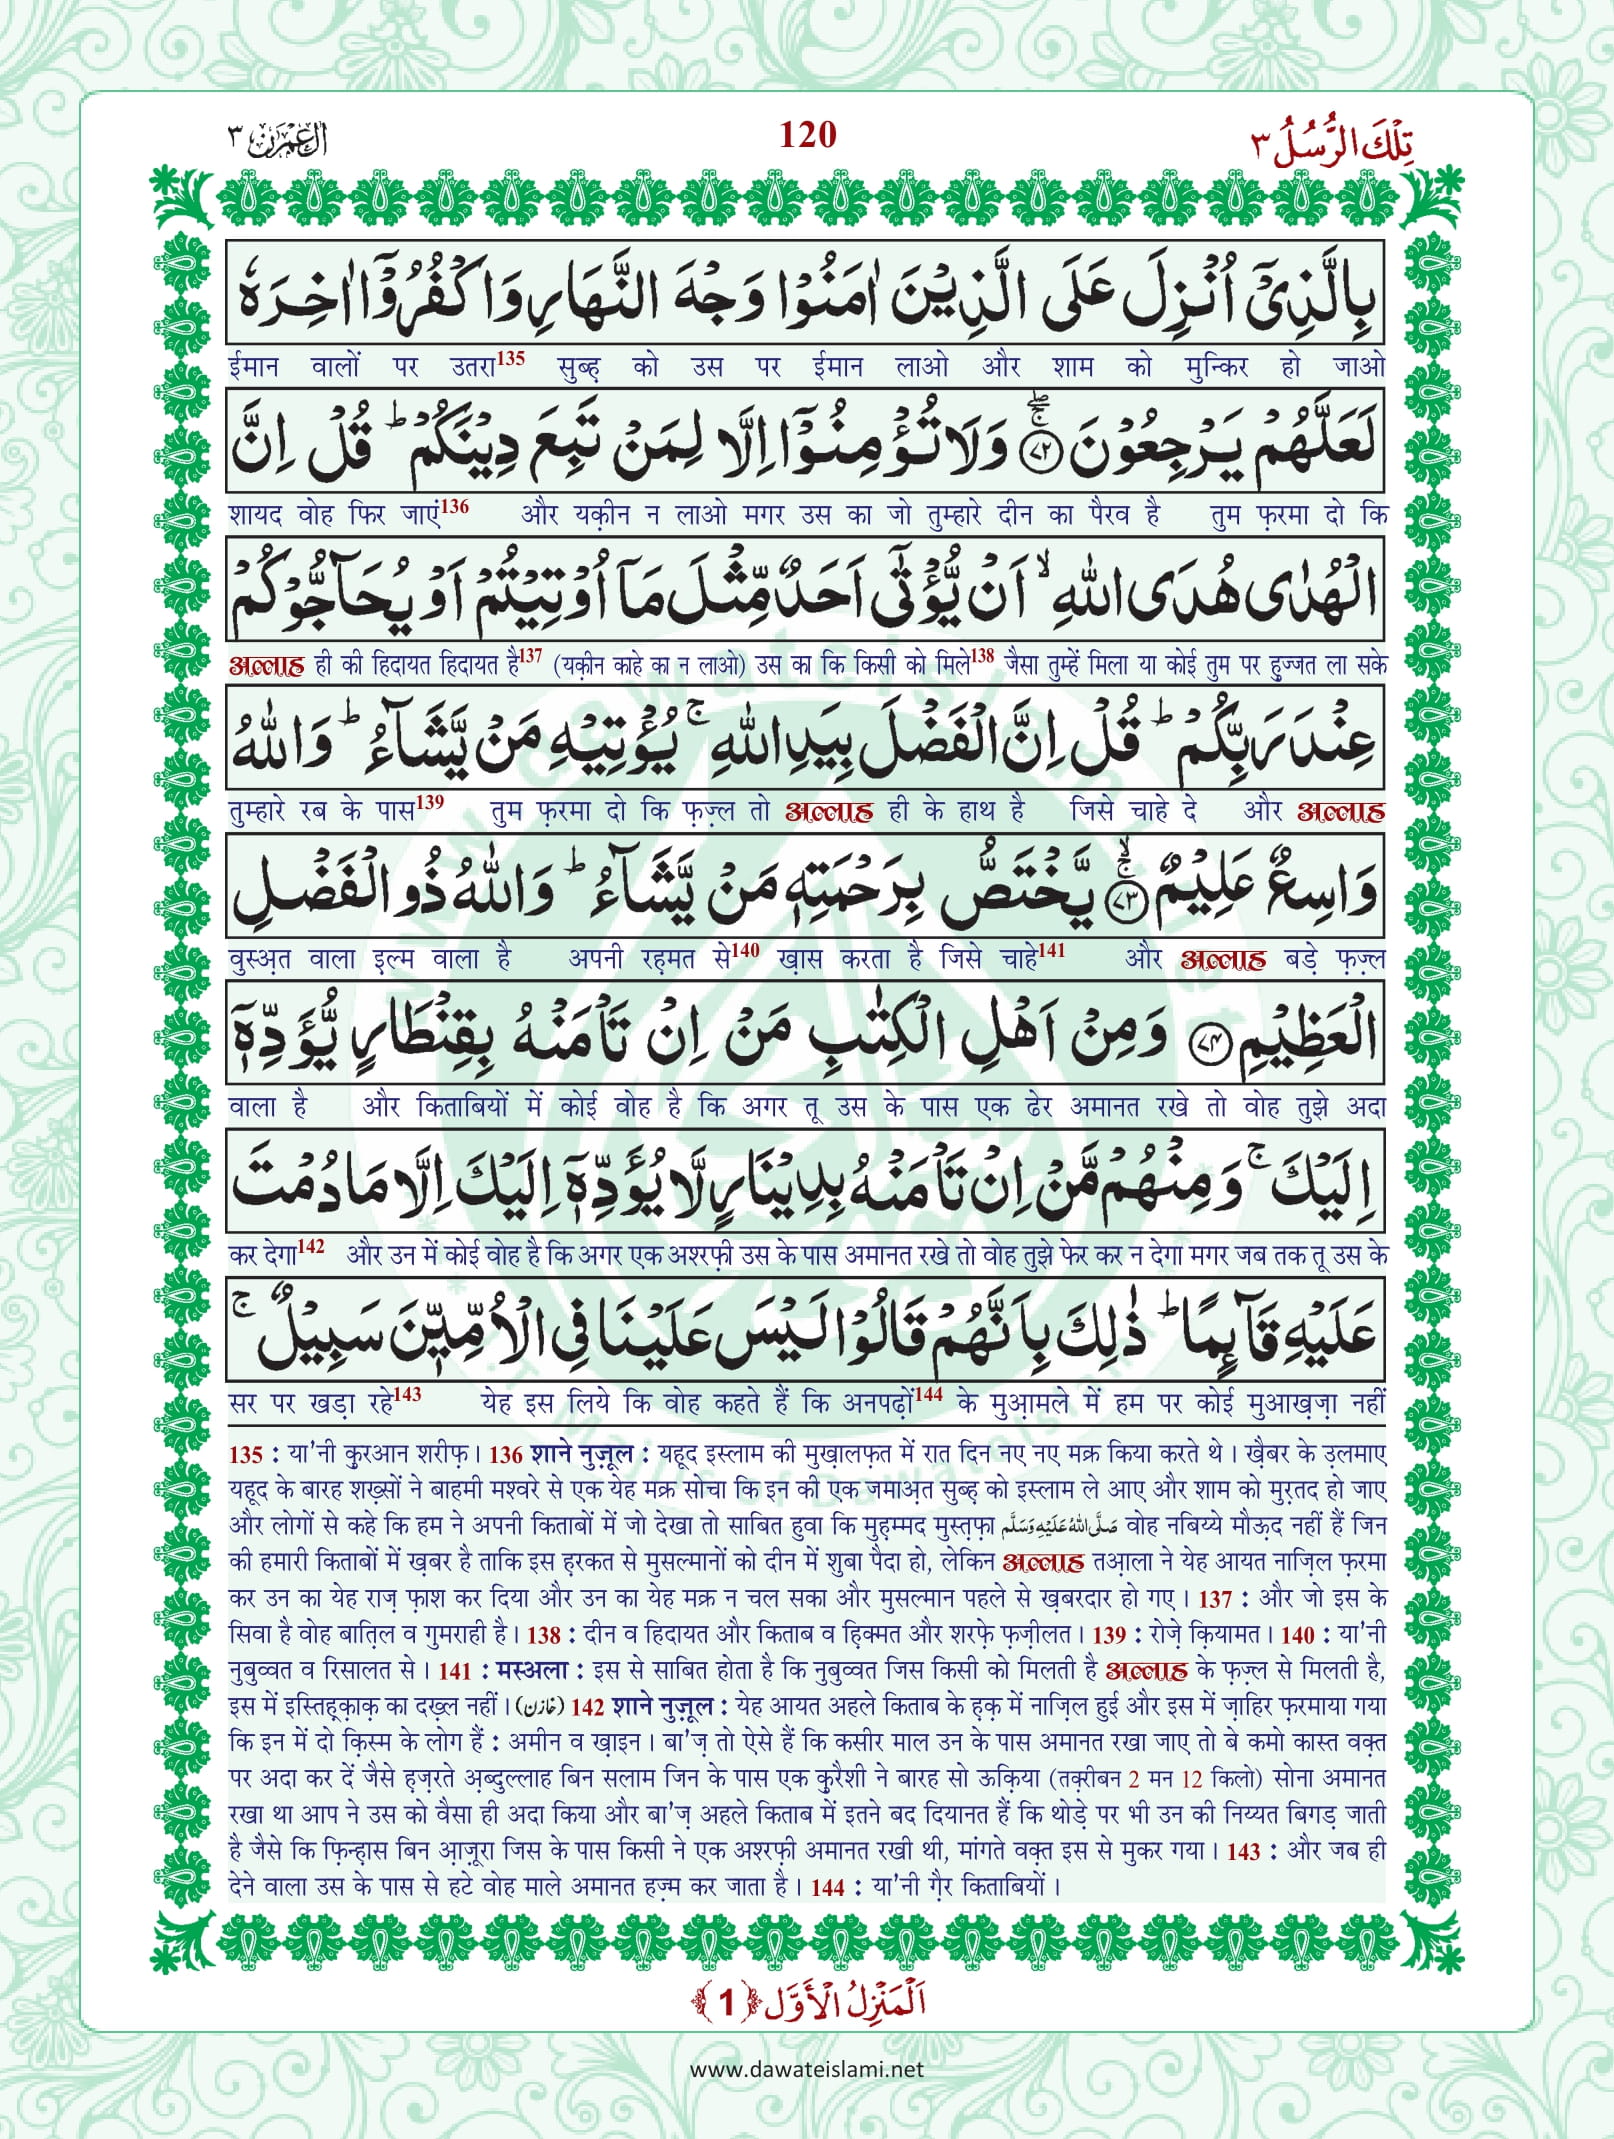 العمرٰن ٣
120
تِلْكَ الرُّسُلُ ٣
بِالَّذِیْۤ اُنْزِلَ عَلَى الَّذِیْنَ اٰمَنُوْا وَجْهَ النَّهَارِ وَاكْفُرُوْۤا اٰخِرَهٗ
ईमान वालों पर उतरा135 सुब्ह़ को उस पर ईमान लाओ और शाम को मुन्किर हो जाओ
لَعَلَّهُمْ یَرْجِعُوْنَ ﴿۷۲﴾ۚۖ وَلَا تُؤْمِنُوْۤا اِلَّا لِمَنْ تَبِعَ دِیْنَكُمْ ؕ قُلْ اِنَّ
शायद वोह फिर जाएं136 और यक़ीन न लाओ मगर उस का जो तुम्हारे दीन का पैरव है तुम फ़रमा दो कि
الْهُدٰى هُدَى اللّٰهِ ۙ اَنْ یُّؤْتٰۤى اَحَدٌ مِّثْلَ مَاۤ اُوْتِیْتُمْ اَوْ یُحَآجُّوْكُمْ
अल्लाह ही की हिदायत हिदायत है137 (यक़ीन काहे का न लाओ) उस का कि किसी को मिले138 जैसा तुम्हें मिला या कोई तुम पर हुज्जत ला सके
عِنْدَ رَبِّكُمْ ؕ قُلْ اِنَّ الْفَضْلَ بِیَدِ اللّٰهِ ۚ یُؤْتِیْهِ مَنْ یَّشَآءُ ؕ وَاللّٰهُ
तुम्हारे रब के पास139 तुम फ़रमा दो कि फ़ज़्ल तो अल्लाह ही के हाथ है जिसे चाहे दे और अल्लाह
وَاسِعٌ عَلِیْمٌ ﴿۷۳﴾ۚۙ یَّخْتَصُّ بِرَحْمَتِهٖ مَنْ یَّشَآءُ ؕ وَاللّٰهُ ذُو الْفَضْلِ
वुस्अ़त वाला इल्म वाला है अपनी रह़मत से140 ख़ास करता है जिसे चाहे141 और अल्लाह बड़े फ़ज़्ल
الْعَظِیْمِ ﴿۷۴﴾ وَمِنْ اَهْلِ الْكِتٰبِ مَنْ اِنْ تَاْمَنْهُ بِقِنْطَارٍ یُّؤَدِّهٖۤ
वाला है और किताबियों में कोई वोह है कि अगर तू उस के पास एक ढेर अमानत रखे तो वोह तुझे अदा
اِلَیْكَ ۚ وَمِنْهُمْ مَّنْ اِنْ تَاْمَنْهُ بِدِیْنَارٍ لَّا یُؤَدِّهٖۤ اِلَیْكَ اِلَّا مَا دُمْتَ
कर देगा142 और उन में कोई वोह है कि अगर एक अश्रफ़ी उस के पास अमानत रखे तो वोह तुझे फेर कर न देगा मगर जब तक तू उस के
عَلَیْهِ قَآىِٕمًا ؕ ذٰلِكَ بِاَنَّهُمْ قَالُوْا لَیْسَ عَلَیْنَا فِی الْاُمِّیّٖنَ سَبِیْلٌ ۚ
सर पर खड़ा रहे143 येह इस लिये कि वोह कहते हैं कि अनपढ़ों144 के मुआ़मले में हम पर कोई मुआख़ज़ा नहीं
135 : या'नी कुरआन शरीफ़। 136 शाने नुज़ूल : यहूद इस्लाम की मुख़ालफ़त में रात दिन नए नए मक्र किया करते थे। ख़ैबर के उ़लमाए
यहूद के बारह शख़्सों ने बाहमी मश्वरे से एक येह मक्र सोचा कि इन की एक जमाअ़त सुब्ह़ को इस्लाम ले आए और शाम को मुरतद हो जाए
और लोगों से कहे कि हम ने अपनी किताबों में जो देखा तो साबित हुवा कि मुह़म्मद मुस्त़फ़ा صَلَّى اللّٰهُ عَلَیْهِ وَسَلَّم वोह नबिय्ये मौऊ़द नहीं हैं जिन
की हमारी किताबों में ख़बर है ताकि इस ह़रकत से मुसल्मानों को दीन में शुबा पैदा हो, लेकिन अल्लाह तआ़ला ने येह आयत नाज़िल फ़रमा
कर उन का येह राज़ फ़ाश कर दिया और उन का येह मक्र न चल सका और मुसल्मान पहले से ख़बरदार हो गए। 137 : और जो इस के
सिवा है वोह बात़िल व गुमराही है। 138 : दीन व हिदायत और किताब व ह़िक्मत और शरफ़े फ़ज़ीलत। 139 : रोज़े क़ियामत। 140 : या'नी
नुबुव्वत व रिसालत से। 141 : मस्अला : इस से साबित होता है कि नुबुव्वत जिस किसी को मिलती है अल्लाह के फ़ज़्ल से मिलती है,
इस में इस्तिह़क़ाक़ का दख़्ल नहीं। (خازن) 142 शाने नुज़ूल : येह आयत अहले किताब के ह़क़ में नाज़िल हुई और इस में ज़ाहिर फ़रमाया गया
कि इन में दो क़िस्म के लोग हैं : अमीन व ख़ाइन। बा'ज़ तो ऐसे हैं कि कसीर माल उन के पास अमानत रखा जाए तो बे कमो कास्त वक़्त
पर अदा कर दें जैसे ह़ज़रते अ़ब्दुल्लाह बिन सलाम जिन के पास एक कुरैशी ने बारह सो ऊक़िया (तक़रीबन 2 मन 12 किलो) सोना अमानत
रखा था आप ने उस को वैसा ही अदा किया और बा'ज़ अहले किताब में इतने बद दियानत हैं कि थोड़े पर भी उन की निय्यत बिगड़ जाती
है जैसे कि फ़िन्ह़ास बिन आ़ज़ूरा जिस के पास किसी ने एक अश्रफ़ी अमानत रखी थी, मांगते वक़्त इस से मुकर गया। 143 : और जब ही
देने वाला उस के पास से हटे वोह माले अमानत हज़्म कर जाता है। 144 : या'नी ग़ैर किताबियों।
اَلْمَنْزِلُ الْاَوَّل ﴿1﴾
www.dawateislami.net